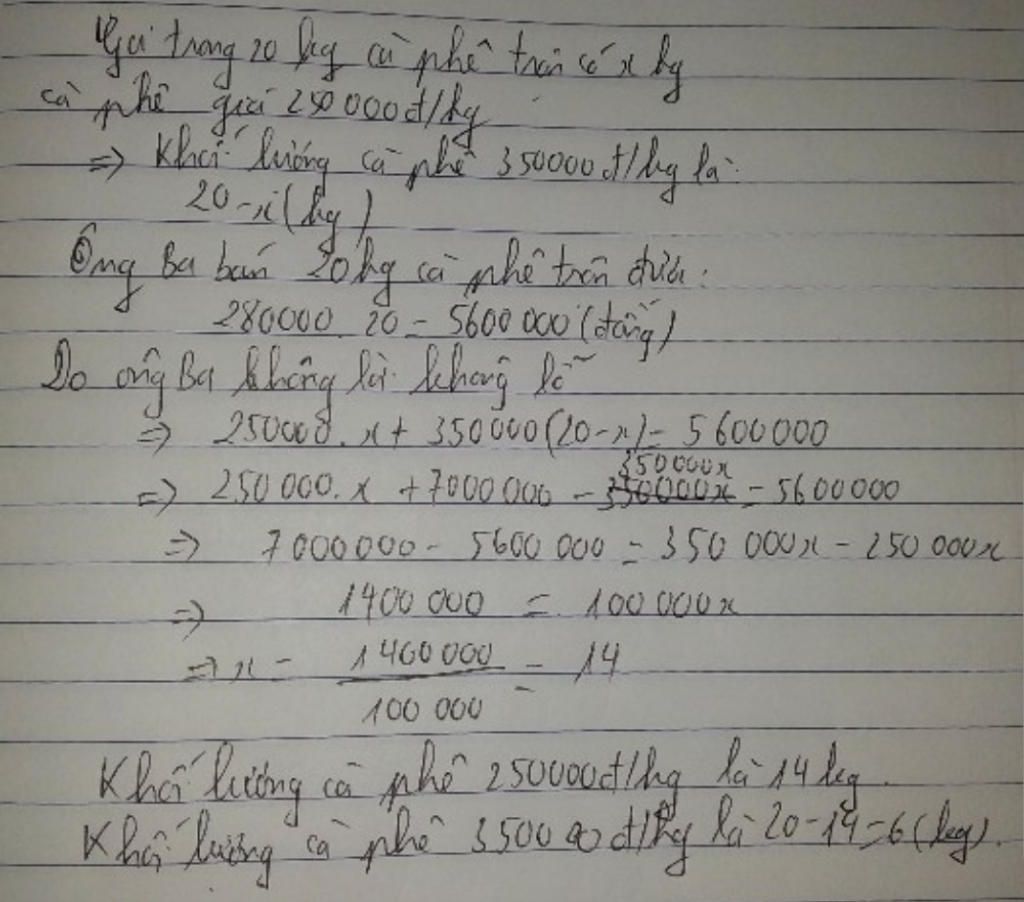 Giả trong 20 kg cà phê trộn có x kg
cà phê giá 250000đ/kg
=> Khối lượng cà phê 350000đ/kg là:
20-x(kg)
Ông Ba bán 20kg cà phê trộn được:
280000.20 = 5600000(đồng)
Do ông Ba không lời không lỗ
=> 250000.x + 350000(20-x) = 5600000
350000x
=> 250 000.x + 7000000 - 350000x = 5600000
=> 7000000 - 5600 000 = 350 000x - 250 000x
=> 1400 000 = 100 000x
=> x = 1400000 = 14
100 000
Khối lượng cà phê 250000đ/kg là 14 kg.
Khối lượng cà phê 350000đ/kg là 20-14=6(kg).